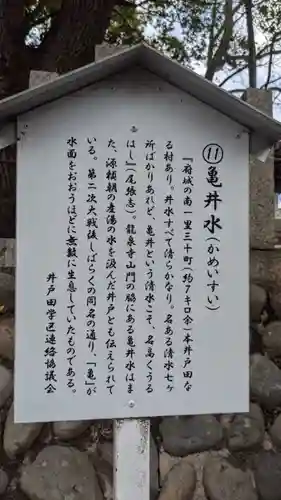 ⑪亀井水(かめいすい)
『府城の南一里三十町(約7キロ余)本井戸田な
る村あり。井水すべて清らかなり。名ある清水七ヶ
所ばかりあれど、亀井という清水こそ、名高くうる
はし』(尾張志)。龍泉寺山門の脇にある亀井水はま
た、源頼朝の産湯の水を汲んだ井戸とも伝えられて
いる。第二次大戦後しばらくの間名の通り、「亀」が
水面をおおうほどに無数に生息していたものである。
井戸田学区連絡協議会